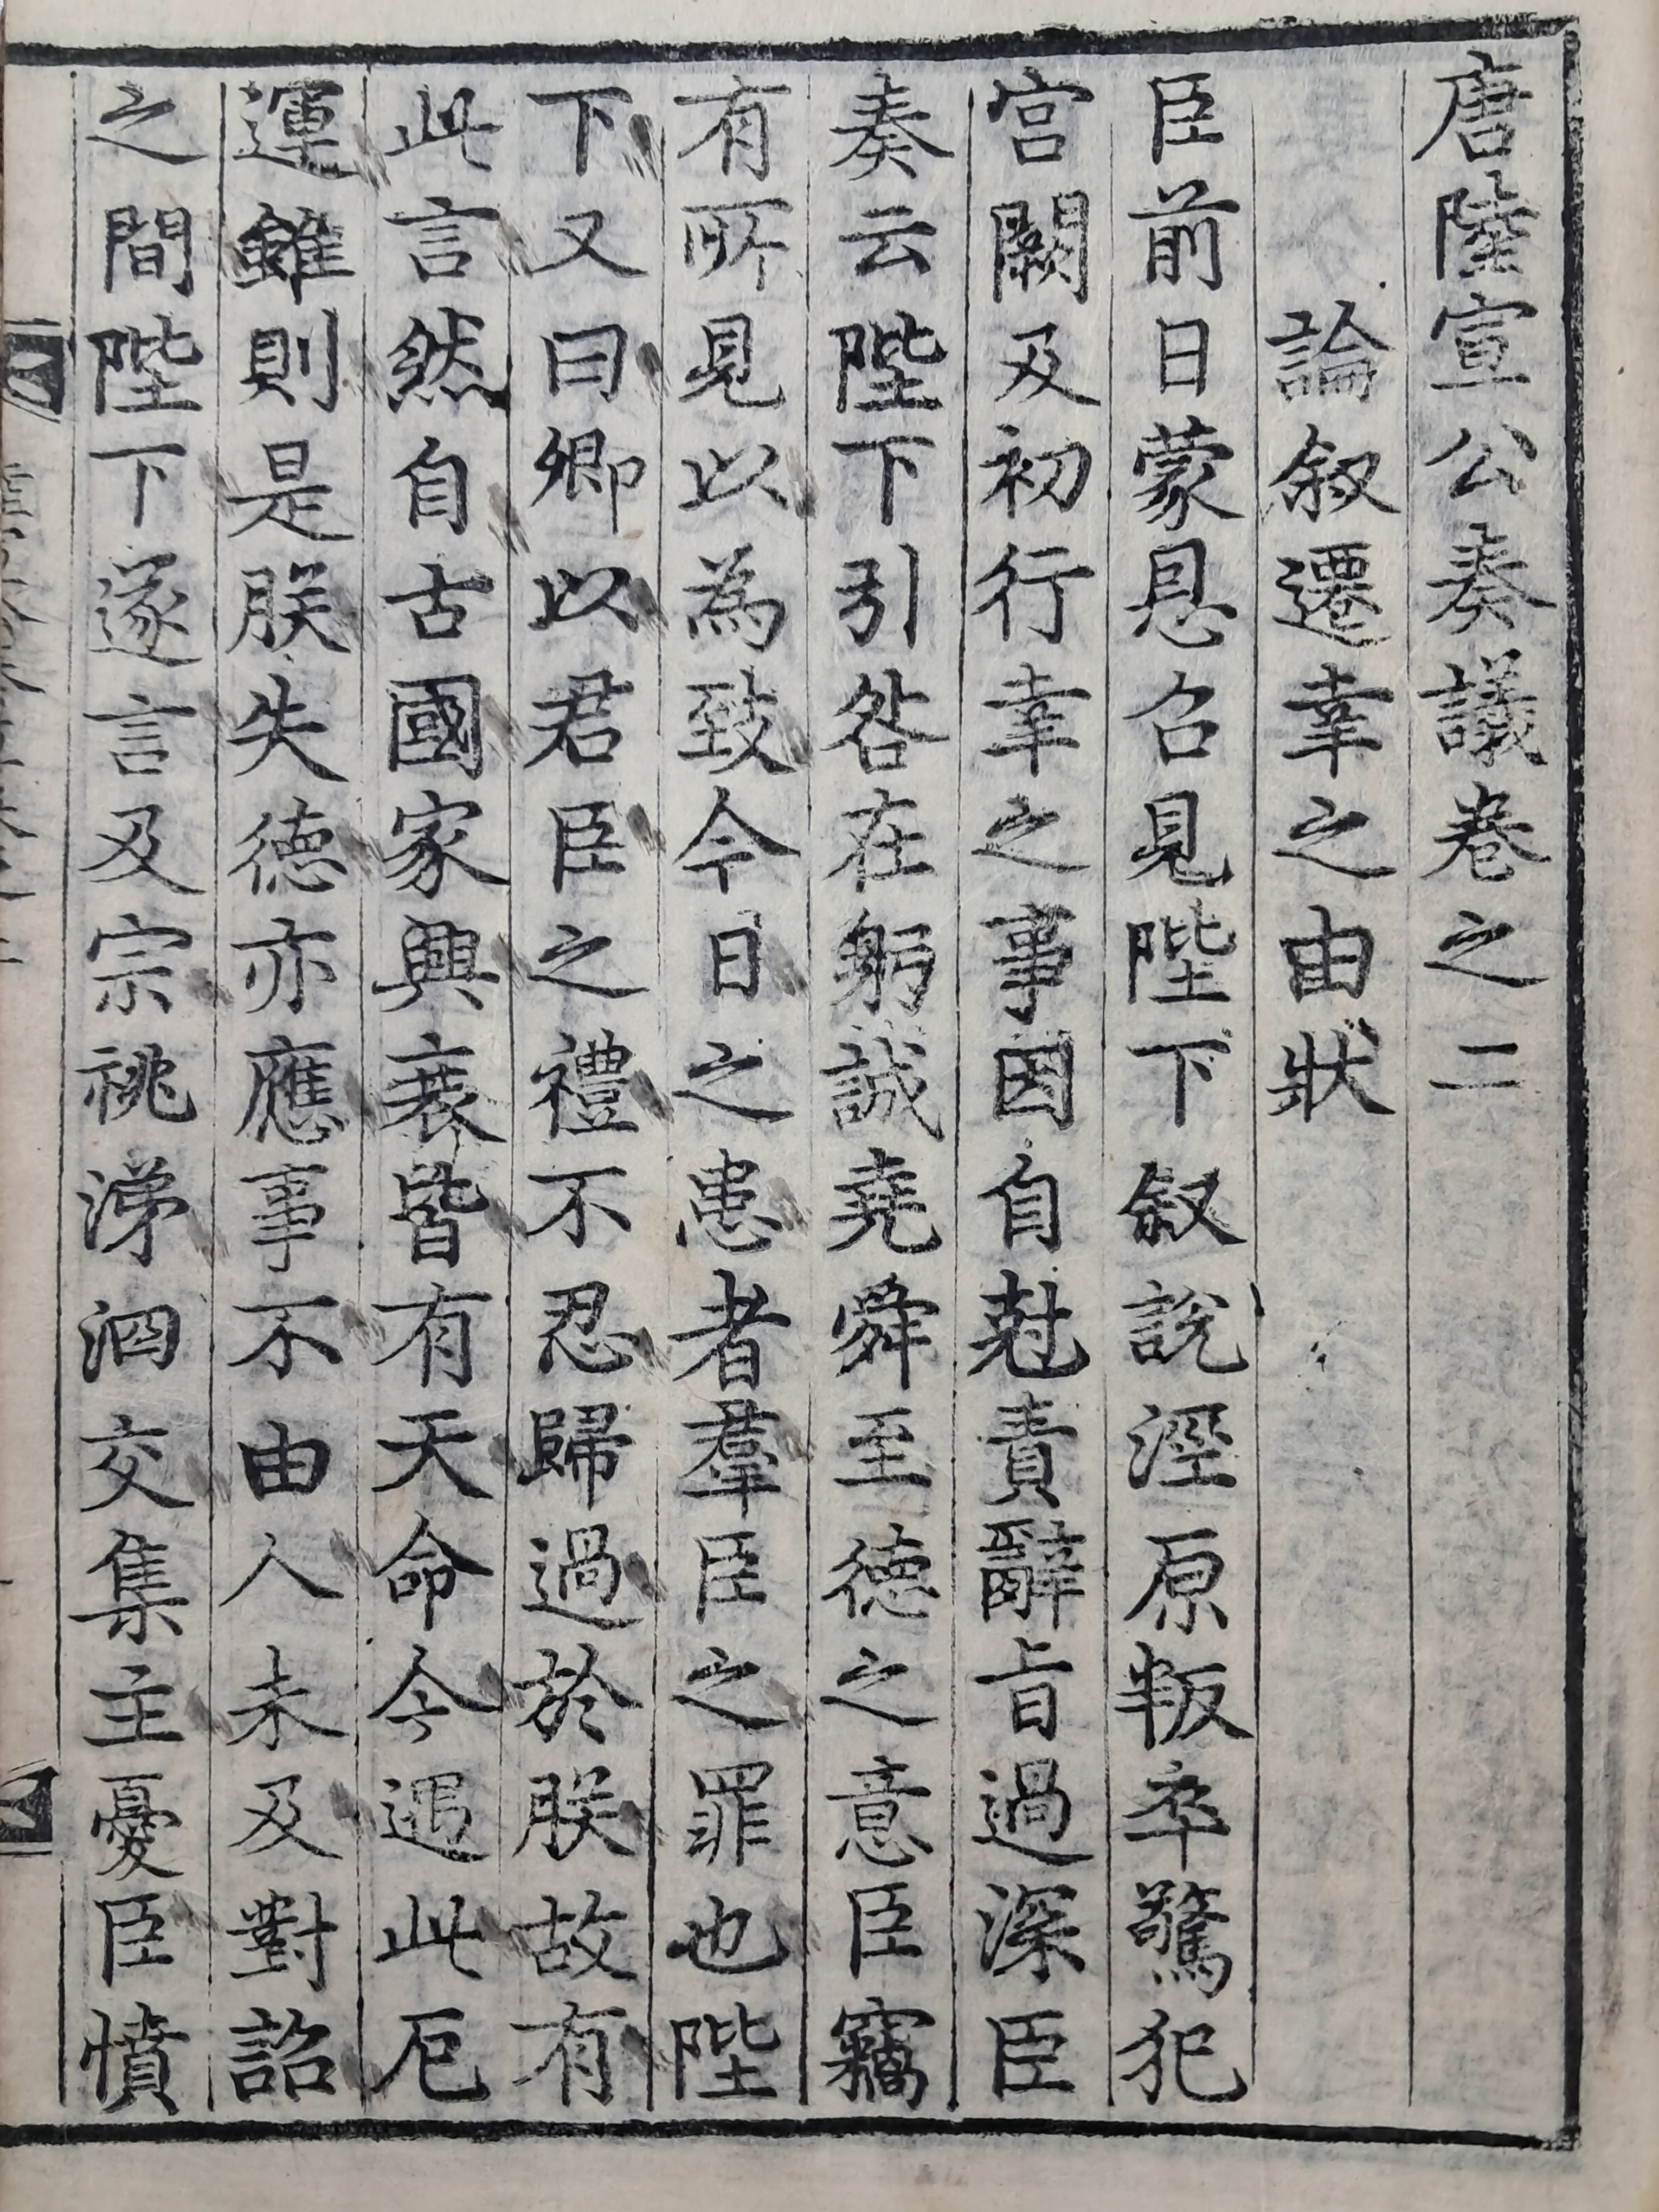 唐陸宣公奏議卷之二
論叙遷幸之由狀
臣前日蒙恩召見陛下叙說涇原叛卒驚犯
宮闕及初行幸之事因自尅責辭旨過深臣
奏云陛下引咎在躬誠堯舜至德之意臣竊
有所見以為致今日之患者羣臣之罪也陛
下又曰卿以君臣之禮不忍歸過於朕故有
此言然自古國家興衰皆有天命今遇此厄
運雖則是朕失德亦應事不由人未及對詔
之間陛下遂言及宗祧涕泗交集主憂臣憤